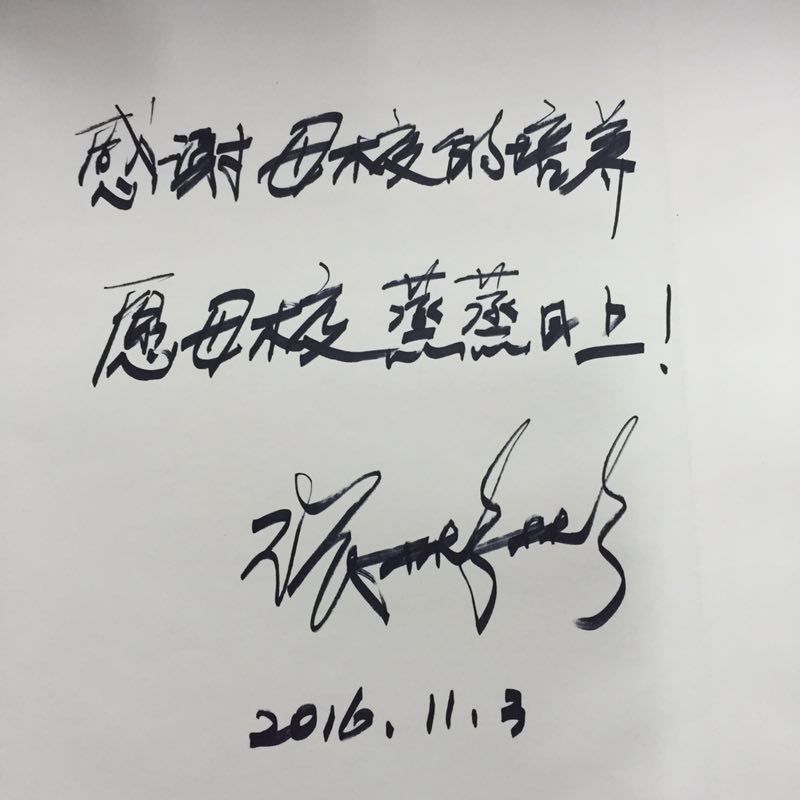 感谢母校的培养
愿母校蒸蒸日上！
张彬彬
2016.11.3